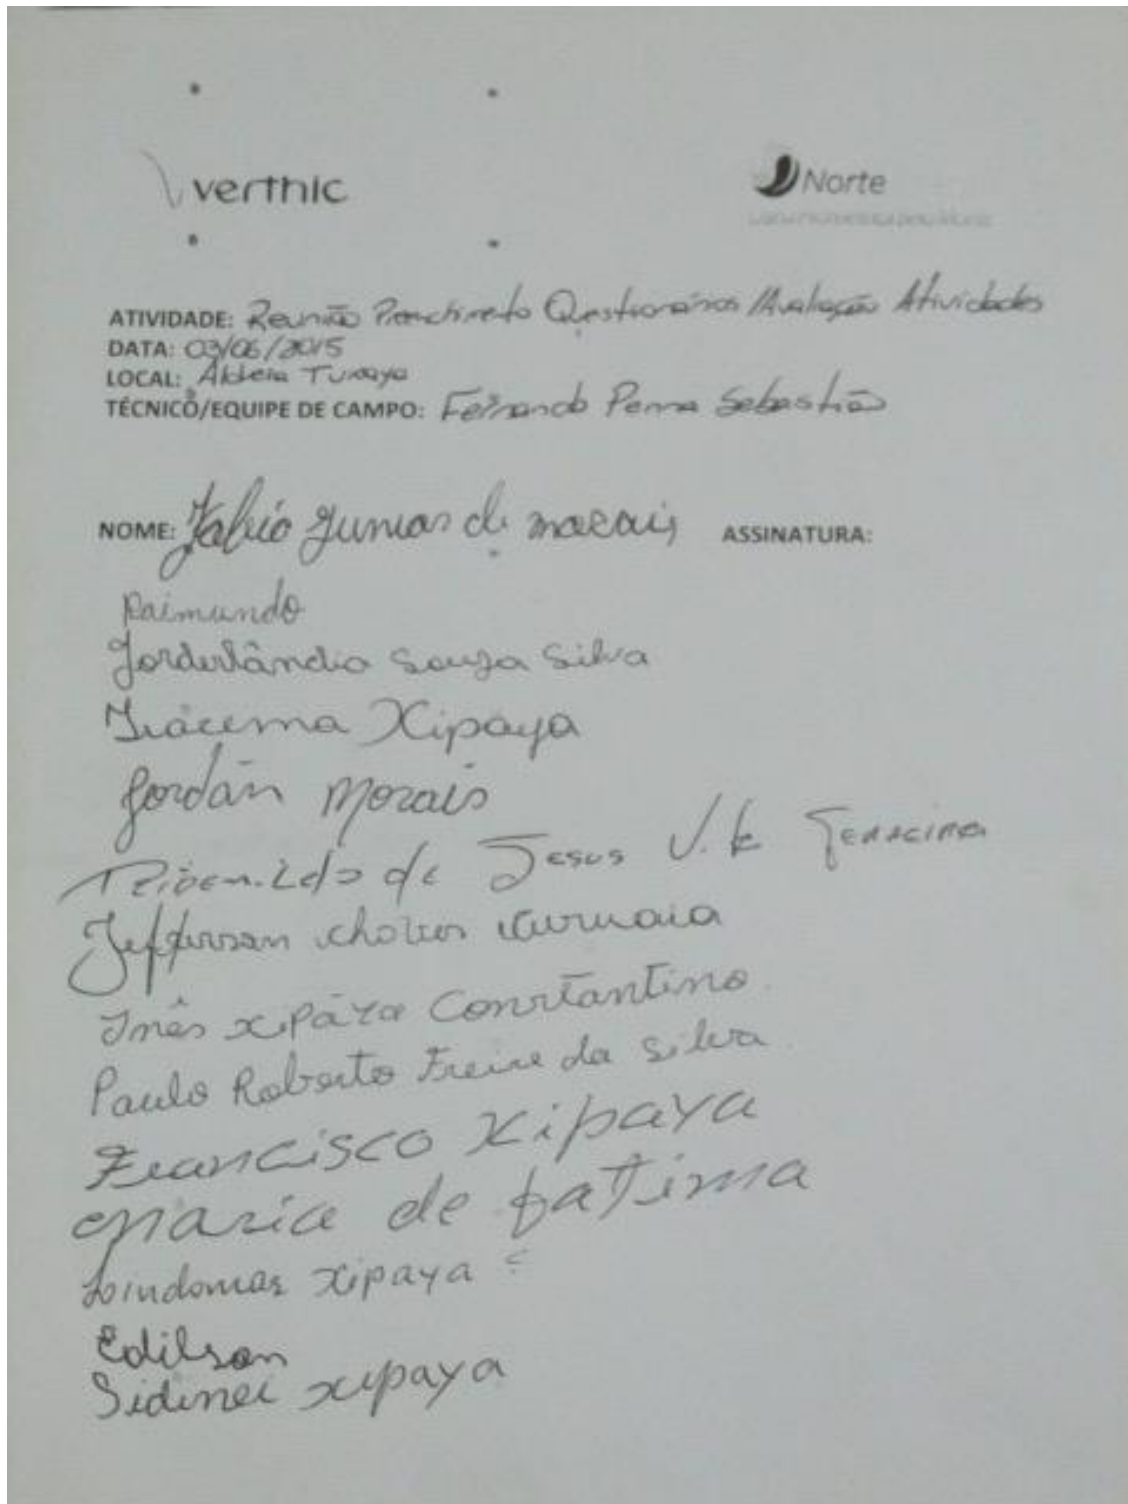 verthic
Norte
ATIVIDADE: Reunião Preenchimento Questionários / Avaliação Atividades
DATA: 03/06/2015
LOCAL: Aldeia Tukaya
TÉCNICO/EQUIPE DE CAMPO: Fernando Penna Sebastião
NOME: Fabio Junior de morais ASSINATURA:
Raimundo
Jorderlândio Souza Silva
Iracema Xipaya
Jordán Morais
de Jesus V. de
Jefferson chaves curuaia
Inês xipáya Constantino
Paulo Roberto Freire da silva
Francisco Xipaya
maria de fatima
Lindomar xipaya
Edilson
Sidinei xipaya